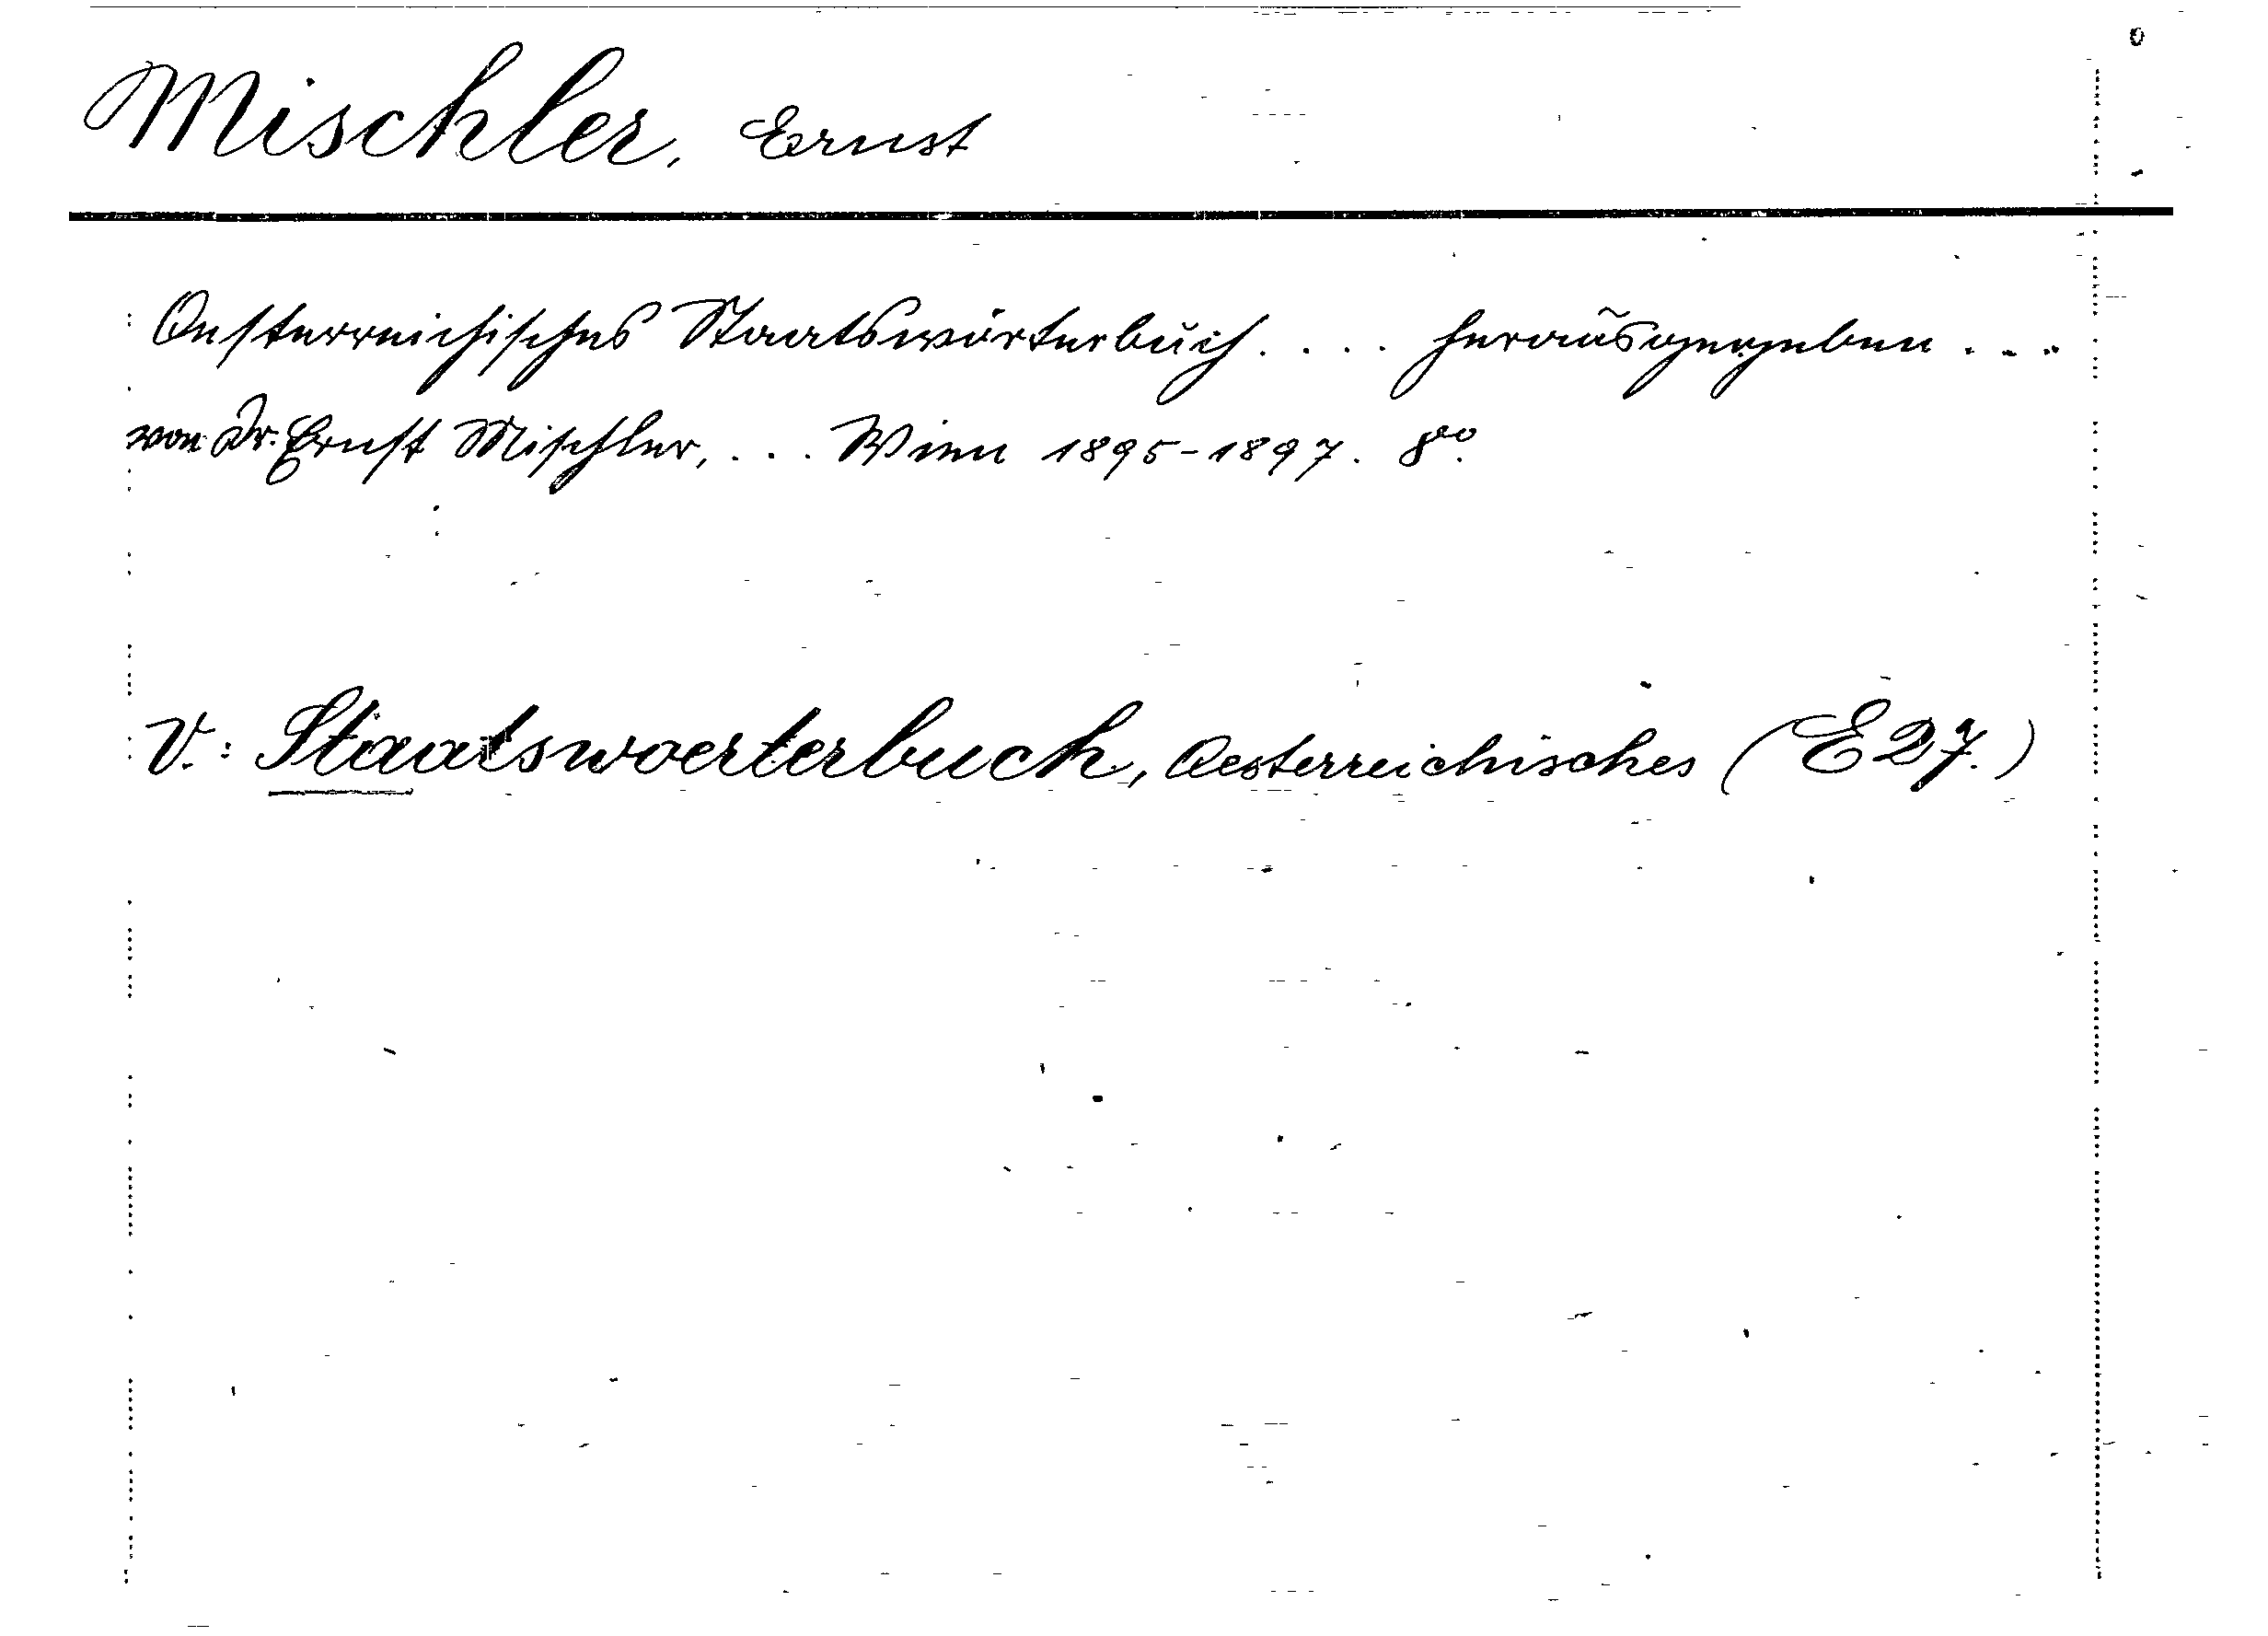 Mischler, Ernst
Oesterreichisches Staatswörterbuch.... herausgegeben...
von Dr. Ernst Mischler,... Wien 1895-1897. 8vo.
V.: Staatswoerterbuch, Oesterreichisches (E27.)